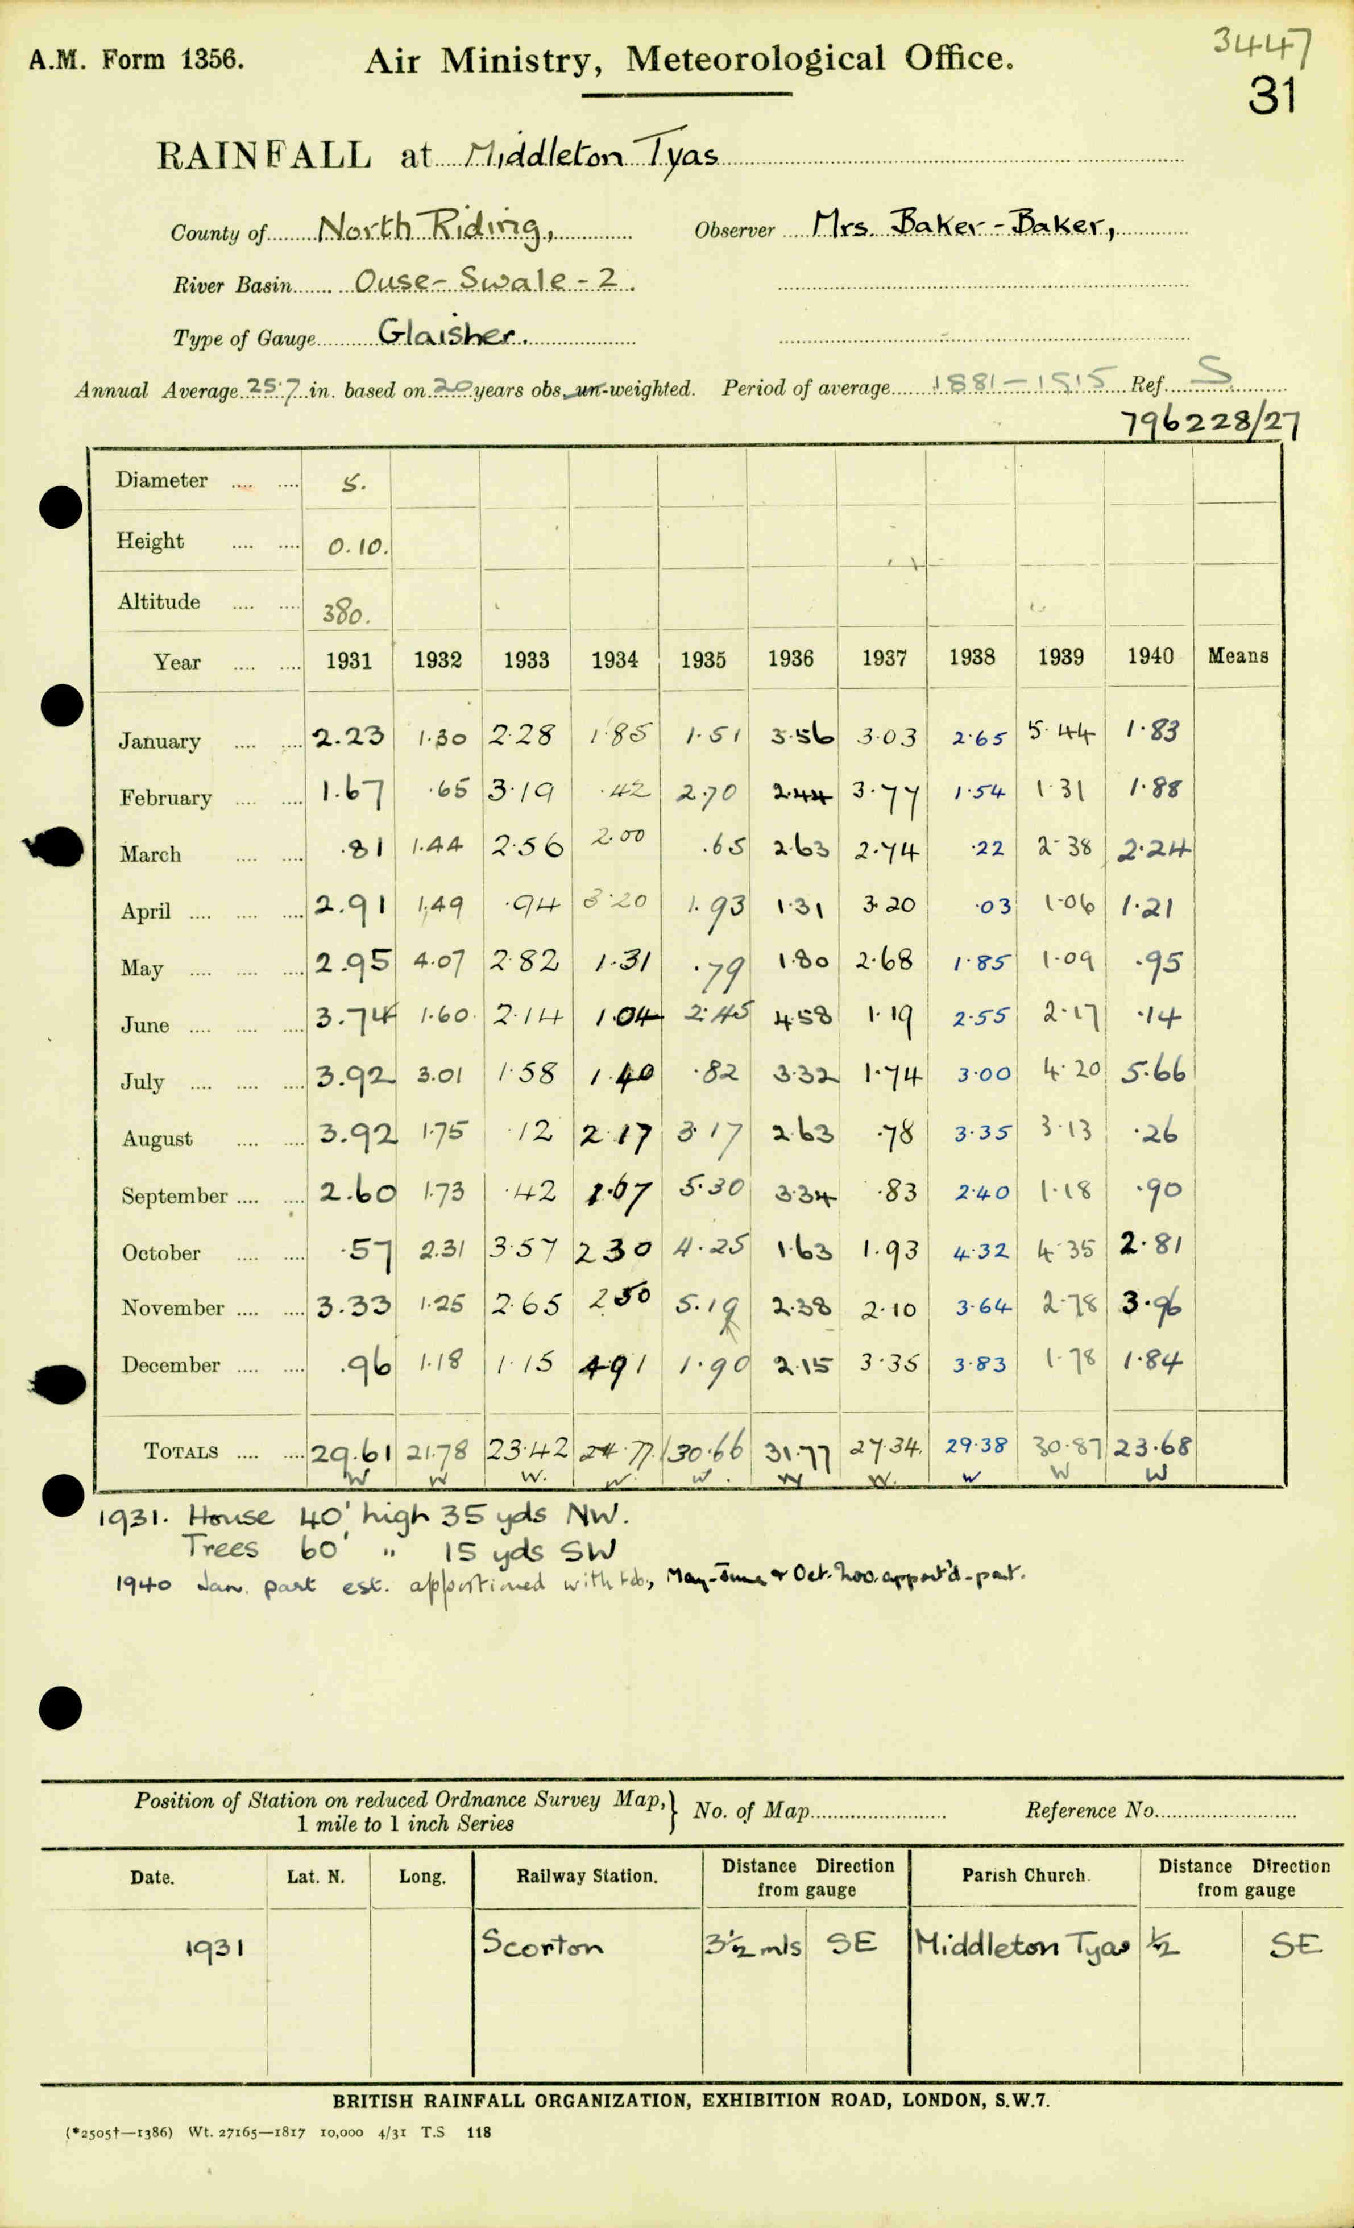 3447
A.M. Form 1356. Air Ministry, Meteorological Office.
31
RAINFALL at Middleton Tyas
County of North Riding, Observer Mrs. Baker-Baker,
River Basin Ouse-Swale-2.
Type of Gauge Glaisher.
Annual Average 25.7 in. based on 20 years obs. un-weighted. Period of average 1881-1915 Ref. S.
796228/27
Diameter 5.
Height 0.10.
Altitude 380.
Year 1931 1932 1933 1934 1935 1936 1937 1938 1939 1940 Means
January 2.23 1.30 2.28 1.85 1.51 3.56 3.03 2.65 5.44 1.83
February 1.67 .65 3.19 .42 2.70 2.44 3.77 1.54 1.31 1.88
March .81 1.44 2.56 2.00 .65 2.63 2.74 .22 2.38 2.24
April 2.91 1.49 .94 3.20 1.93 1.31 3.20 .03 1.06 1.21
May 2.95 4.07 2.82 1.31 .79 1.80 2.68 1.85 1.09 .95
June 3.74 1.60 2.14 1.04 2.45 4.58 1.19 2.55 2.17 .14
July 3.92 3.01 1.58 1.40 .82 3.32 1.74 3.00 4.20 5.66
August 3.92 1.75 .12 2.17 3.17 2.63 .78 3.35 3.13 .26
September 2.60 1.73 .42 1.67 5.30 3.34 .83 2.40 1.18 .90
October .57 2.31 3.57 2.30 4.25 1.63 1.93 4.32 4.35 2.81
November 3.33 1.25 2.65 2.50 5.19 2.38 2.10 3.64 2.78 3.96
December .96 1.18 1.15 4.91 1.90 2.15 3.35 3.83 1.78 1.84
TOTALS 29.61 21.78 23.42 24.77 30.66 31.77 27.34. 29.38 30.87 23.68
W W W. W. W. W W. W W W
1931. House 40' high 35 yds NW.
Trees 60' " 15 yds SW
1940 Jan. part est. apportioned with Feb., May-June & Oct. Nov. apport'd-part.
Position of Station on reduced Ordnance Survey Map, No. of Map Reference No.
1 mile to 1 inch Series
Date. Lat. N. Long. Railway Station. Distance Direction from gauge Parish Church. Distance Direction from gauge
1931 Scorton 3½ mls SE Middleton Tyas ½ SE
BRITISH RAINFALL ORGANIZATION, EXHIBITION ROAD, LONDON, S.W.7.
(*2505†—1386) Wt. 27165—1817 10,000 4/31 T.S 118